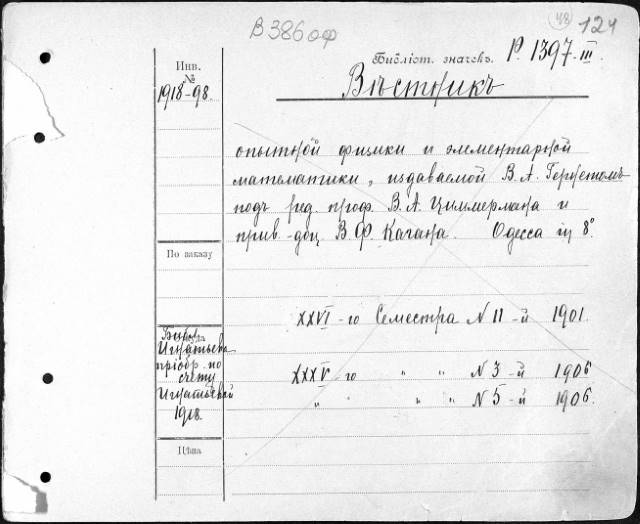 В 386 оф
48
124
Библіот. значекъ. Р 1397-III
Инв.
№
1918-98.
Вѣстникъ
опытной физики и элементарной
математики, издаваемой В. А. Гернетомъ
подъ ред. проф. В. А. Циммермана и
прив.-доц. В. Ф. Кагана. Одесса in 8°
По заказу
XXVI-го Семестра № 11-й 1901.
Библ.
Игнатьева
пріобр. по
счету
Игнатьевой
1918.
XXXV-го " " № 3-й 1906
" " " № 5-й 1906.
Цѣна